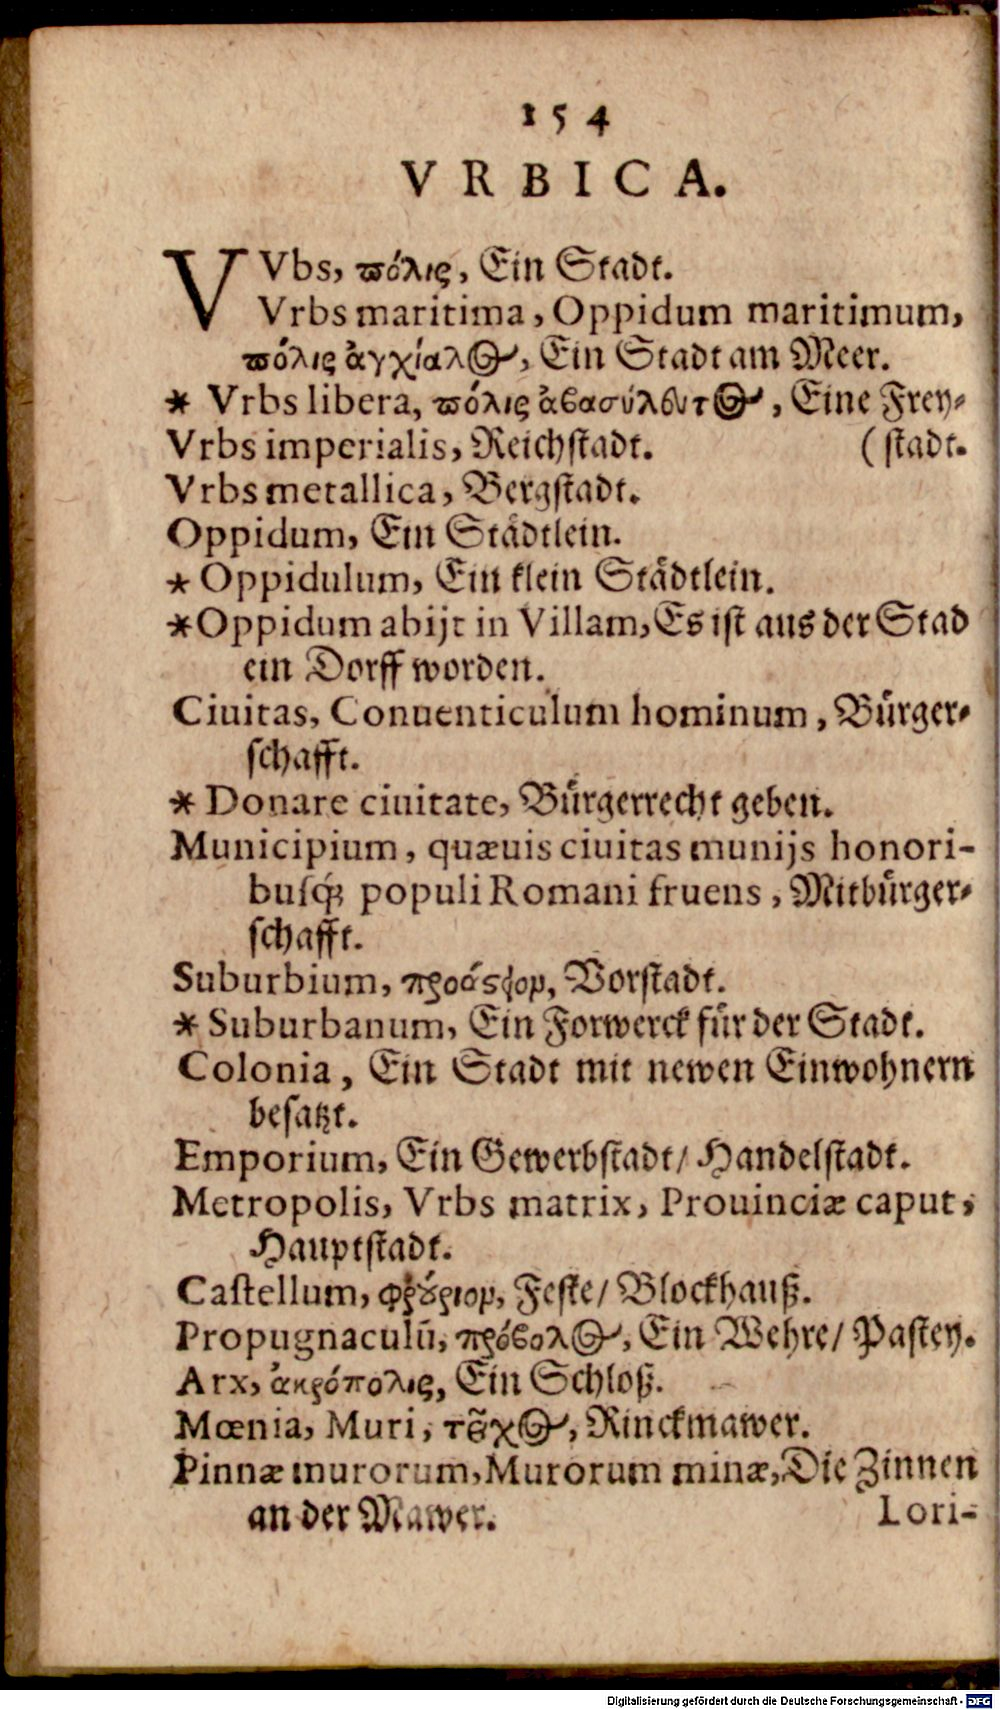 154
VRBICA.
VVbs, πόλις, Ein Stadt.
Vrbs maritima, Oppidum maritimum,
πόλις ἀγχίαλος, Ein Stadt am Meer.
* Vrbs libera, πόλις ἀβασύλευτος, Eine Frey-
Vrbs imperialis, Reichstadt. (stadt.
Vrbs metallica, Bergstadt.
Oppidum, Ein Städtlein.
* Oppidulum, Ein klein Städtlein.
*Oppidum abijt in Villam, Es ist aus der Stad
ein Dorff worden.
Ciuitas, Conuenticulum hominum, Bürger-
schafft.
* Donare ciuitate, Bürgerrecht geben.
Municipium, quæuis ciuitas munijs honori-
busq́; populi Romani fruens, Mitbürger-
schafft.
Suburbium, προάστειον, Vorstadt.
* Suburbanum, Ein Forwerck für der Stadt.
Colonia, Ein Stadt mit newen Einwohnern
besatzt.
Emporium, Ein Gewerbstadt/ Handelstadt.
Metropolis, Vrbs matrix, Prouinciæ caput,
Hauptstadt.
Castellum, φρούριον, Feste/ Blockhauß.
Propugnaculū, πρόβολος, Ein Wehre/ Pastey.
Arx, ἀκρόπολις, Ein Schloß.
Mœnia, Muri, τεῖχος, Rinckmawer.
Pinnæ murorum, Murorum minæ, Die Zinnen
an der Mawer. Lori-
Digitalisierung gefördert durch die Deutsche Forschungsgemeinschaft - DFG